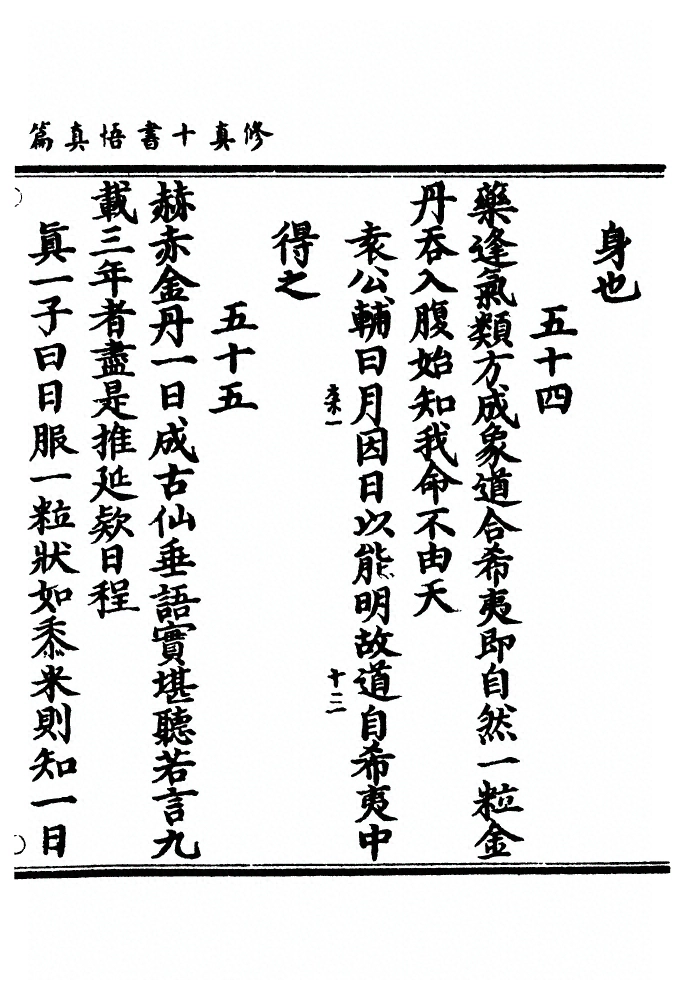 修真十書悟真篇
身也
五十四
藥逢氣類方成象道合希夷即自然一粒金
丹吞入腹始知我命不由天
袁公輔曰月因日以能明故道自希夷中
得之
五十五
赫赤金丹一日成古仙垂語實堪聽若言九
載三年者盡是推延款日程
眞一子曰日服一粒狀如黍米則知一日
十二